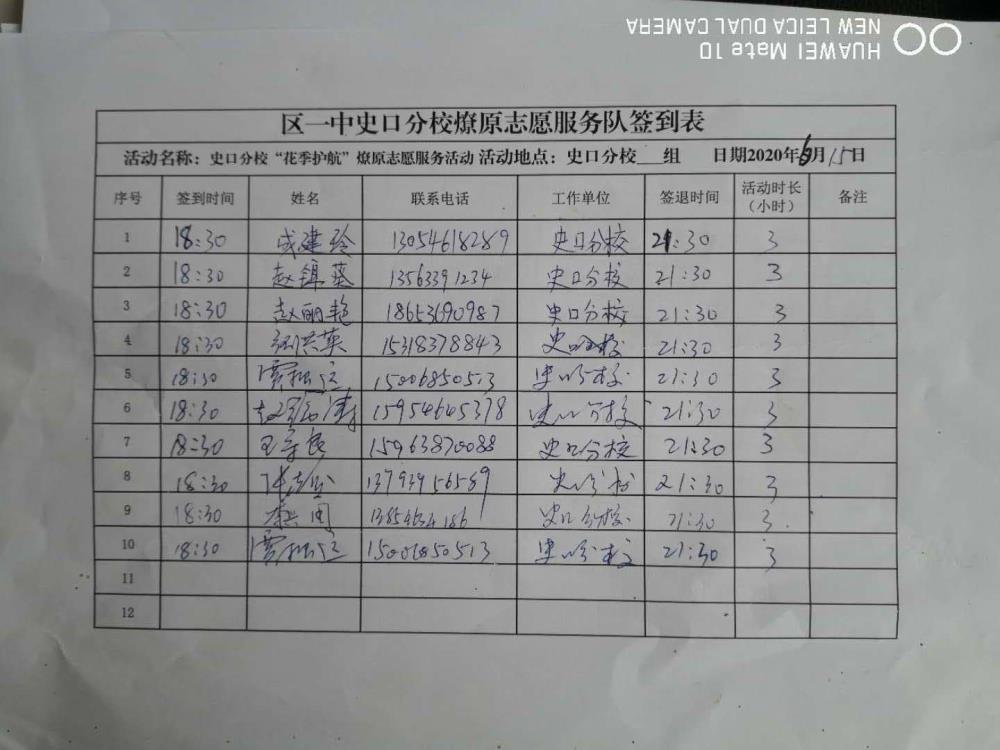 HUAWEI Mate 10
NEW LEICA DUAL CAMERA
区一中史口分校燎原志愿服务队签到表
活动名称：史口分校“花季护航”燎原志愿服务活动 活动地点：史口分校___组 日期2020年6月15日
序号 签到时间 姓名 联系电话 工作单位 签退时间 活动时长（小时） 备注
1 18:30 成建玲 13054618289 史口分校 21:30 3
2 18:30 赵镇葵 13563391234 史口分校 21:30 3
3 18:30 赵丽艳 18653690987 史口分校 21:30 3
4 18:30 洪英 15318378843 史口分校 21:30 3
5 18:30 贾 15006850513 史口分校 21:30 3
6 18:30 赵 涛 15954645378 史口分校 21:30 3
7 18:30 王 15963870088 史口分校 21:30 3
8 18:30 张志 13793956589 史口分校 21:30 3
9 18:30 李 史口分校 21:30 3
10 18:30 贾 15006850513 史口分校 21:30 3
11
12